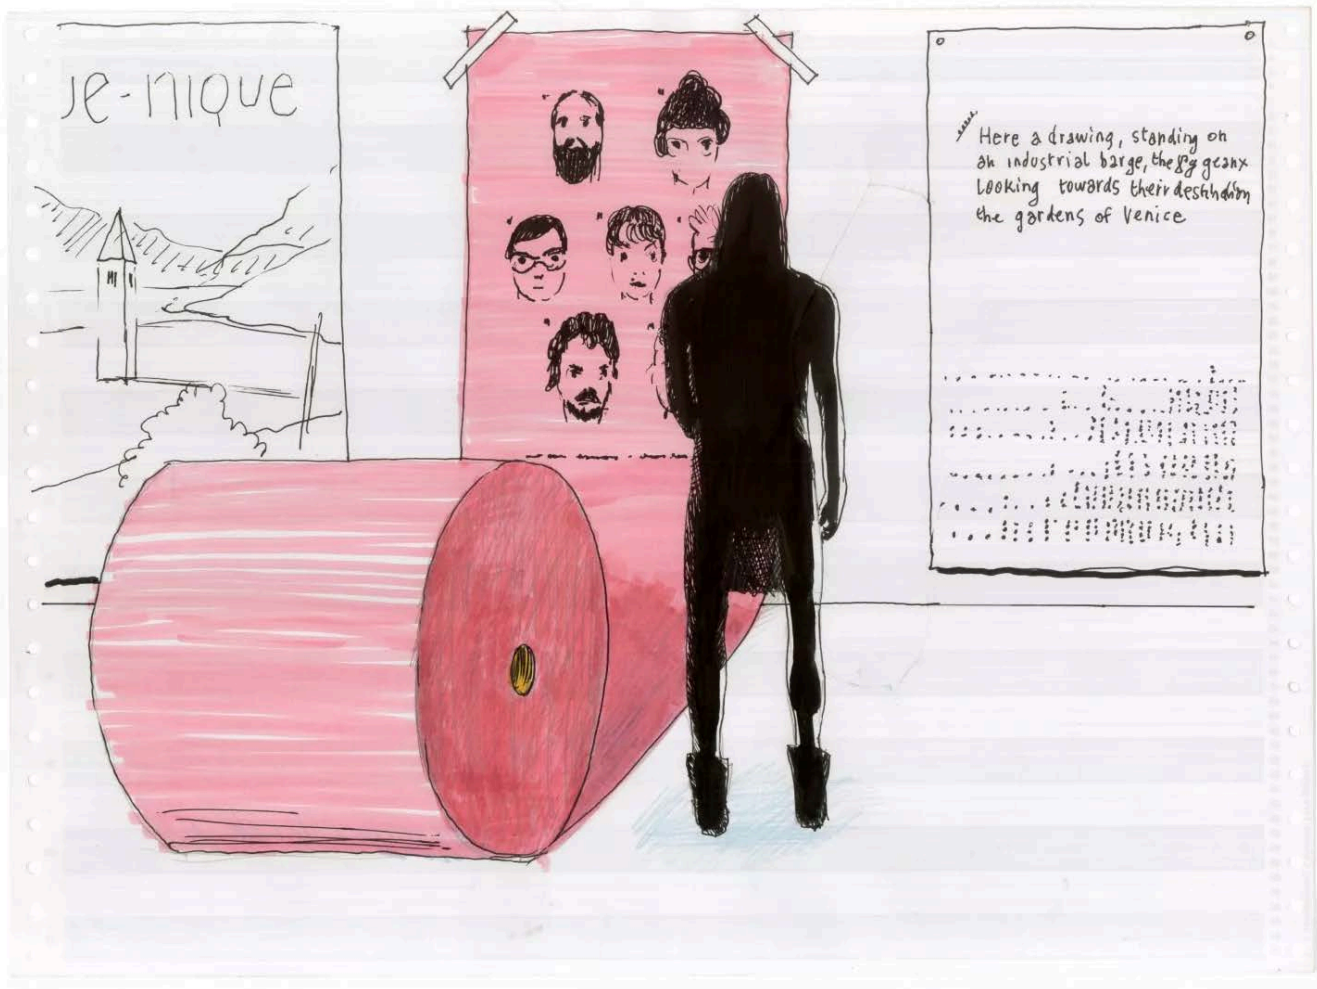 Je-nique
Here a drawing, standing on
an industrial barge, the geanx
Looking towards their destindion
the gardens of Venice